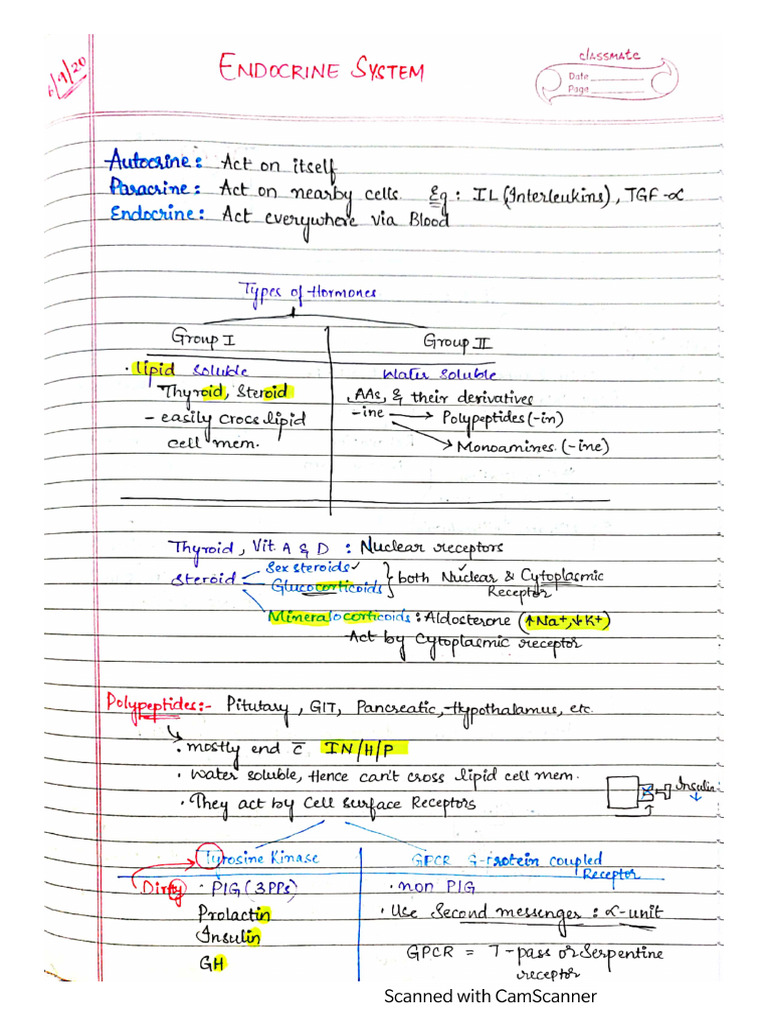 6/9/20
ENDOCRINE SYSTEM
classmate
Date
Page
Autocrine: Act on itself
Paracrine: Act on nearby cells. Eg: IL (Interleukins), TGF-α
Endocrine: Act everywhere via Blood
Types of Hormones
Group I
Group II
• lipid soluble
Water soluble
Thyroid, Steroid
AAs, & their derivatives
- easily cross lipid
-ine → Polypeptides (-in)
cell mem.
→ Monoamines (-ine)
Thyroid, Vit. A & D : Nuclear receptors
Steroid
Sex steroids ✓
Glucocorticoids
} both Nuclear & Cytoplasmic
Receptor
Mineralocorticoids : Aldosterone (↑Na+, ↓K+)
Act by Cytoplasmic receptor
Polypeptides:- Pitutary, GIT, Pancreatic, Hypothalamus, etc.
• mostly end c̄ IN/H/P
• Water soluble, Hence can't cross lipid cell mem.
Insulin
• They act by Cell Surface Receptors
Tyrosine Kinase
GPCR G-Protein coupled
Receptor
Dirty
• PIG (3PPs)
• non PIG
Prolactin
• Use Second messenger : α-unit
Insulin
GPCR = 7-pass or Serpentine
GH
receptor
Scanned with CamScanner